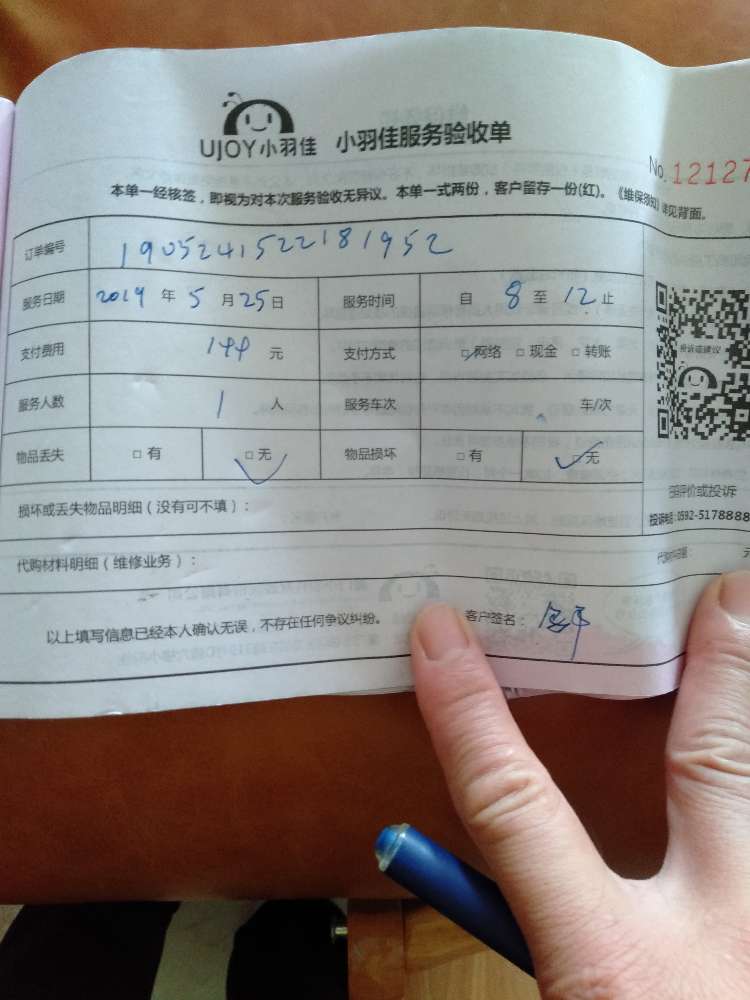 UJOY小羽佳 小羽佳服务验收单
No. 12127
本单一经核签，即视为对本次服务验收无异议。本单一式两份，客户留存一份(红)。《维保须知》详见背面。
订单编号 1905241522181952
服务日期 2019 年 5 月 25 日 服务时间 自 8 至 12 止
支付费用 144 元 支付方式 □网络 □现金 □转账
投诉或建议
服务人数 1 人 服务车次 车/次
物品丢失 □有 □无 物品损坏 □有 □无
扫码评价或投诉
损坏或丢失物品明细（没有可不填）：
投诉电话：0592-5178888
代购材料明细（维修业务）：
代购材料费： 元
以上填写信息已经本人确认无误，不存在任何争议纠纷。 客户签名：